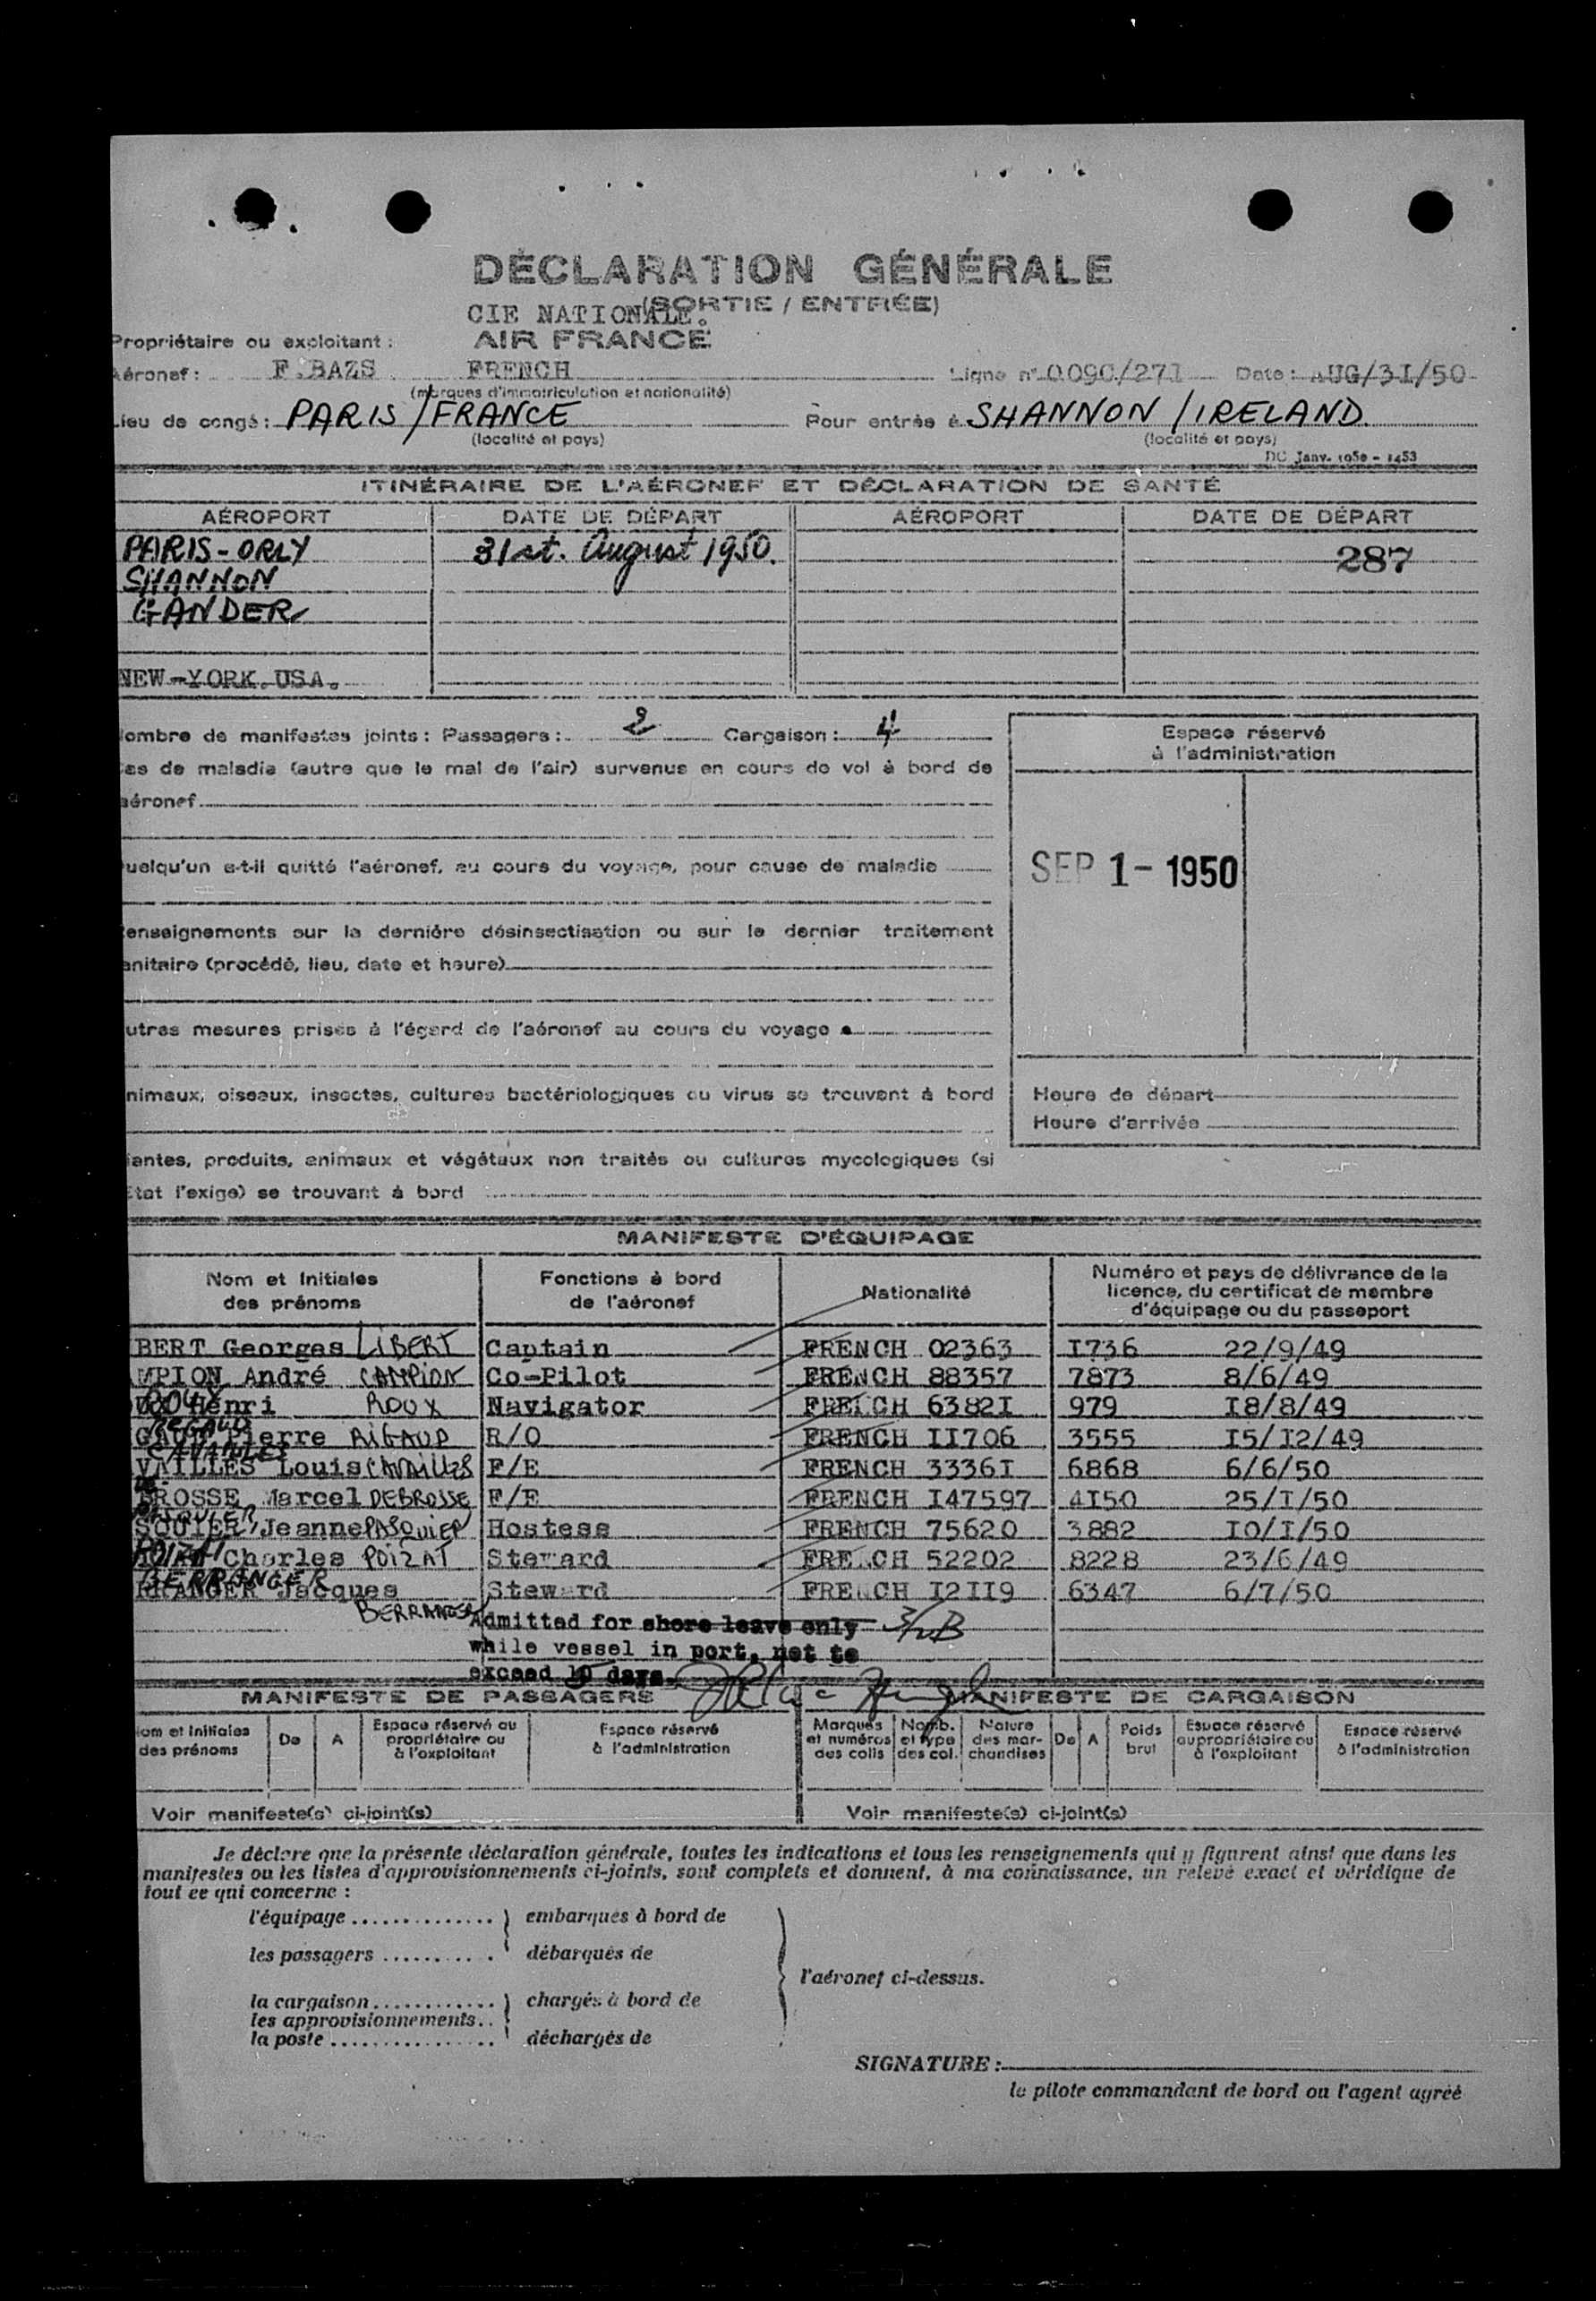 DÉCLARATION GÉNÉRALE
(SORTIE / ENTRÉE)
CIE NATIONALE.
Propriétaire ou exploitant : AIR FRANCE
Aéronef : F.BAZS FRENCH Ligne n° 009C/271 Date : AUG/3I/50
(marques d'immatriculation et nationalité)
Lieu de congé : PARIS / FRANCE Pour entrée à SHANNON / IRELAND
(localité et pays) (localité et pays)
DC Janv. 1950 - 1453
ITINÉRAIRE DE L'AÉRONEF ET DÉCLARATION DE SANTÉ
AÉROPORT DATE DE DÉPART AÉROPORT DATE DE DÉPART
PARIS - ORLY 31st. August 1950. 287
SHANNON
GANDER
NEW-YORK.USA.
ombre de manifestes joints : Passagers : 2 Cargaison : 4
Espace réservé
à l'administration
as de maladie (autre que le mal de l'air) survenus en cours de vol à bord de
aéronef
uelqu'un a-t-il quitté l'aéronef, au cours du voyage, pour cause de maladie
SEP 1- 1950
enseignements sur la dernière désinsectisation ou sur le dernier traitement
anitaire (procédé, lieu, date et heure)
utres mesures prises à l'égard de l'aéronef au cours du voyage
nimaux, oiseaux, insectes, cultures bactériologiques ou virus se trouvent à bord
Heure de départ
Heure d'arrivée
lantes, produits, animaux et végétaux non traités ou cultures mycologiques (si
État l'exige) se trouvant à bord
MANIFESTE D'ÉQUIPAGE
Nom et Initiales des prénoms Fonctions à bord de l'aéronef Nationalité Numéro et pays de délivrance de la licence, du certificat de membre d'équipage ou du passeport
BERT Georges LIBERT Captain FRENCH 02363 I736 22/9/49
MPION André CAMPION Co-Pilot FRENCH 88357 7873 8/6/49
ROUX Henri ROUX Navigator FRENCH 6382I 979 I8/8/49
GAUD Pierre RIGAUD R/O FRENCH II706 3555 I5/I2/49
VAILLES Louis CAVAILLES F/E FRENCH 3336I 6868 6/6/50
BROSSE Marcel DEBROSSE F/E FRENCH I47597 4I50 25/I/50
SQUIER Jeanne PASQUIER Hostess FRENCH 75620 3882 I0/I/50
POIZAT Charles POIZAT Steward FRENCH 52202 8228 23/6/49
BERRANGER
RRANGER Jacques Steward FRENCH I2II9 6347 6/7/50
BERRANGER
Admitted for shore leave only
while vessel in port, not to
exceed 10 days.
MANIFESTE DE PASSAGERS MANIFESTE DE CARGAISON
om et Initiales des prénoms De A Espace réservé au propriétaire ou à l'exploitant Espace réservé à l'administration Marques et numéros des colis Nomb. et type des col. Nature des marchandises De A Poids brut Espace réservé au propriétaire ou à l'exploitant Espace réservé à l'administration
Voir manifeste(s) ci-joint(s) Voir manifeste(s) ci-joint(s)
Je déclare que la présente déclaration générale, toutes les indications et tous les renseignements qui y figurent ainsi que dans les
manifestes ou les listes d'approvisionnements ci-joints, sont complets et donnent, à ma connaissance, un relevé exact et véridique de
tout ce qui concerne :
l'équipage .............. embarqués à bord de
les passagers ........... débarqués de
l'aéronef ci-dessus.
la cargaison............. chargés à bord de
les approvisionnements..
la poste ................ déchargés de
SIGNATURE :
le pilote commandant de bord ou l'agent agréé